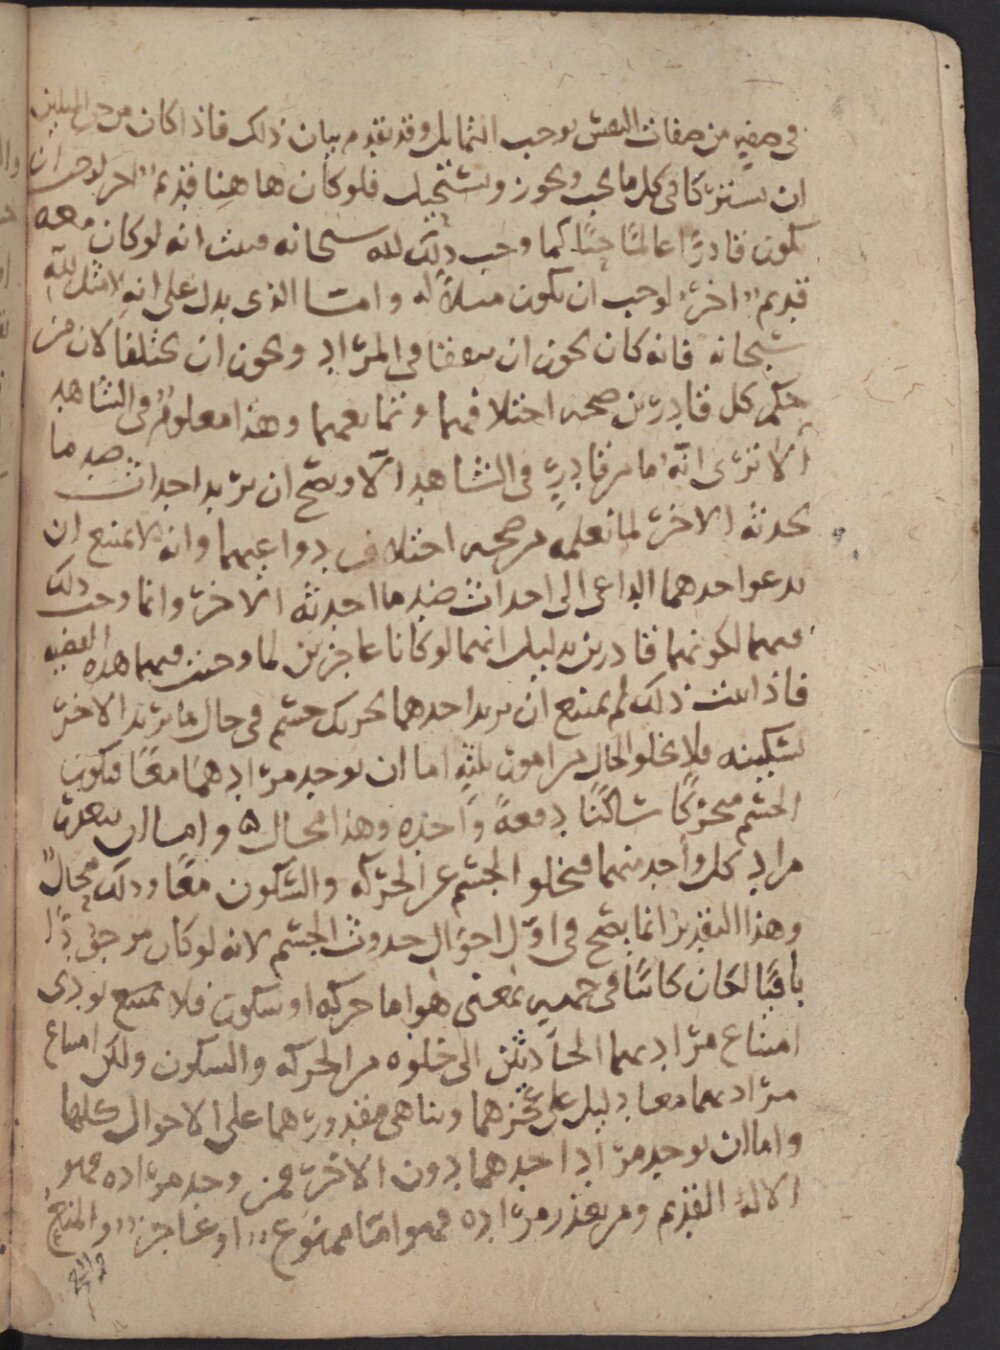 في صفة من صفات النفس يوجب التماثل وقد تقدم بيان ذلك فاذا كان من حق المثلين
ان يشتركا في كل ما يجب ويجوز ويستحيل فلو كان هاهنا قديم اخر لوجب ان
يكون قادرا عالما حيا كما وجب ذلك لله سبحانه فثبت انه لو كان معه
قديم اخر لوجب ان يكون مثلا له وامّا الذى يدل على انه لا مثل لله
سبحانه فانه كان يجوز ان يتفقا في المراد ويجوز ان يختلفا لان من
حكم كل قادرين صحه اختلافهما وتمانعهما وهذا معلوم في الشاهد
الا ترى انه ما من قادر في الشاهد الا ويصح ان يريد احداث ضد ما
يحدثه الاخر لما نعلمه من صحه اختلاف دواعيهما وانه لا يمتنع ان
يدعو احدهما الداعى الى احداث ضد ما احدثه الاخر وانما وجب ذلك
فيهما لكونهما قادرين بدليل انهما لو كانا عاجزين لما وجبت فيهما هذه القضيه
فاذا ثبت ذلك لم يمتنع ان يريد احدهما تحريك جسم في حال ما يريد الاخر
تسكينه فلا يخلو الحال من امور ثلثه اما ان يوجد مرادهما معا فيكون
الجسم متحركا ساكنا دفعة واحده وهذا محال ٥ واما ان يتعذر
مراد كل واحد منهما فيخلو الجسم عن الحركه والسكون معا وذلك محال
وهذا التقدير انما يصح في اول احوال حدوث الجسم لانه لو كان موجودا
باقيا لكان كائنا في جهه بمعنى هو اما حركه او سكون فلا يمتنع يودى
امتناع مراديهما الحادثين الى خلوه من الحركه والسكون ولكن امتناع
مراديهما معا دليل على عجزهما وتناهى مقدورهما على الاحوال كلها
واما ان يوجد مراد احدهما دون الاخر فمن وجد مراده فهو
الاله القديم ومن تعذر مراده فهو امّا ممنوع او عاجز والمنع